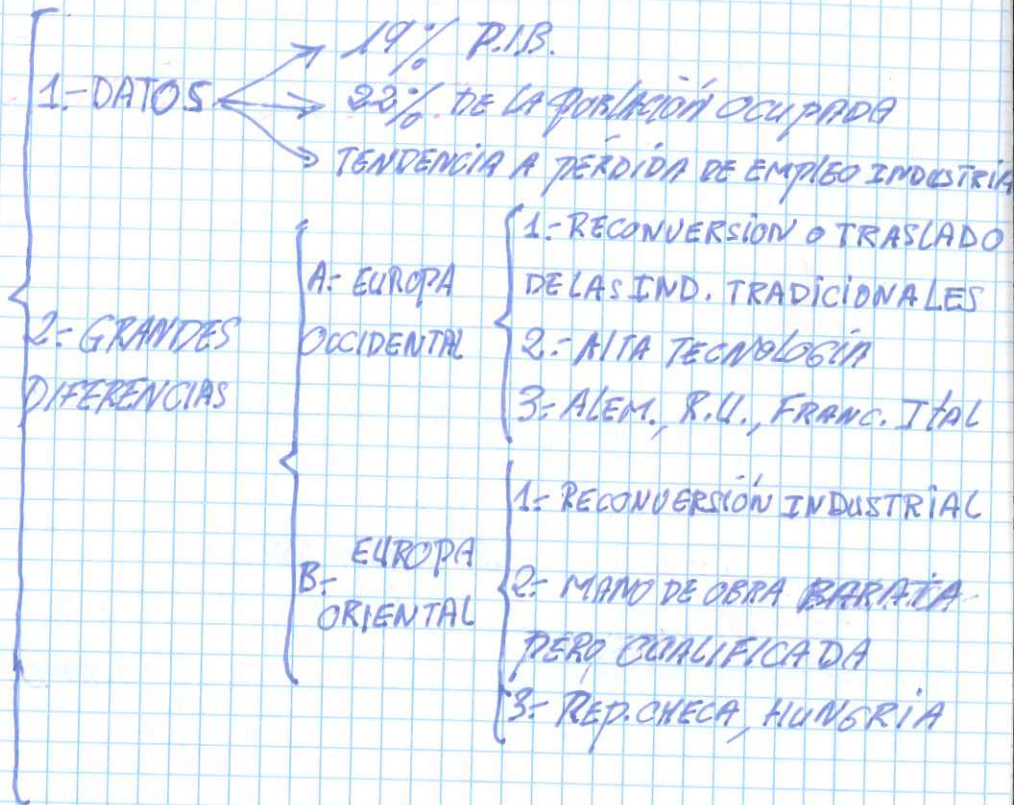 1.- DATOS
19% P.I.B.
22% DE LA POBLACIÓN OCUPADA
TENDENCIA A PÉRDIDA DE EMPLEO INDUSTRIA
2.- GRANDES
DIFERENCIAS
A.- EUROPA
OCCIDENTAL
1.- RECONVERSIÓN O TRASLADO
DE LAS IND. TRADICIONALES
2.- ALTA TECNOLOGÍA
3.- ALEM., R.U., FRANC. ITAL
B.- EUROPA
ORIENTAL
1.- RECONVERSIÓN INDUSTRIAL
2.- MANO DE OBRA BARATA
PERO CUALIFICADA
3.- REP. CHECA, HUNGRÍA